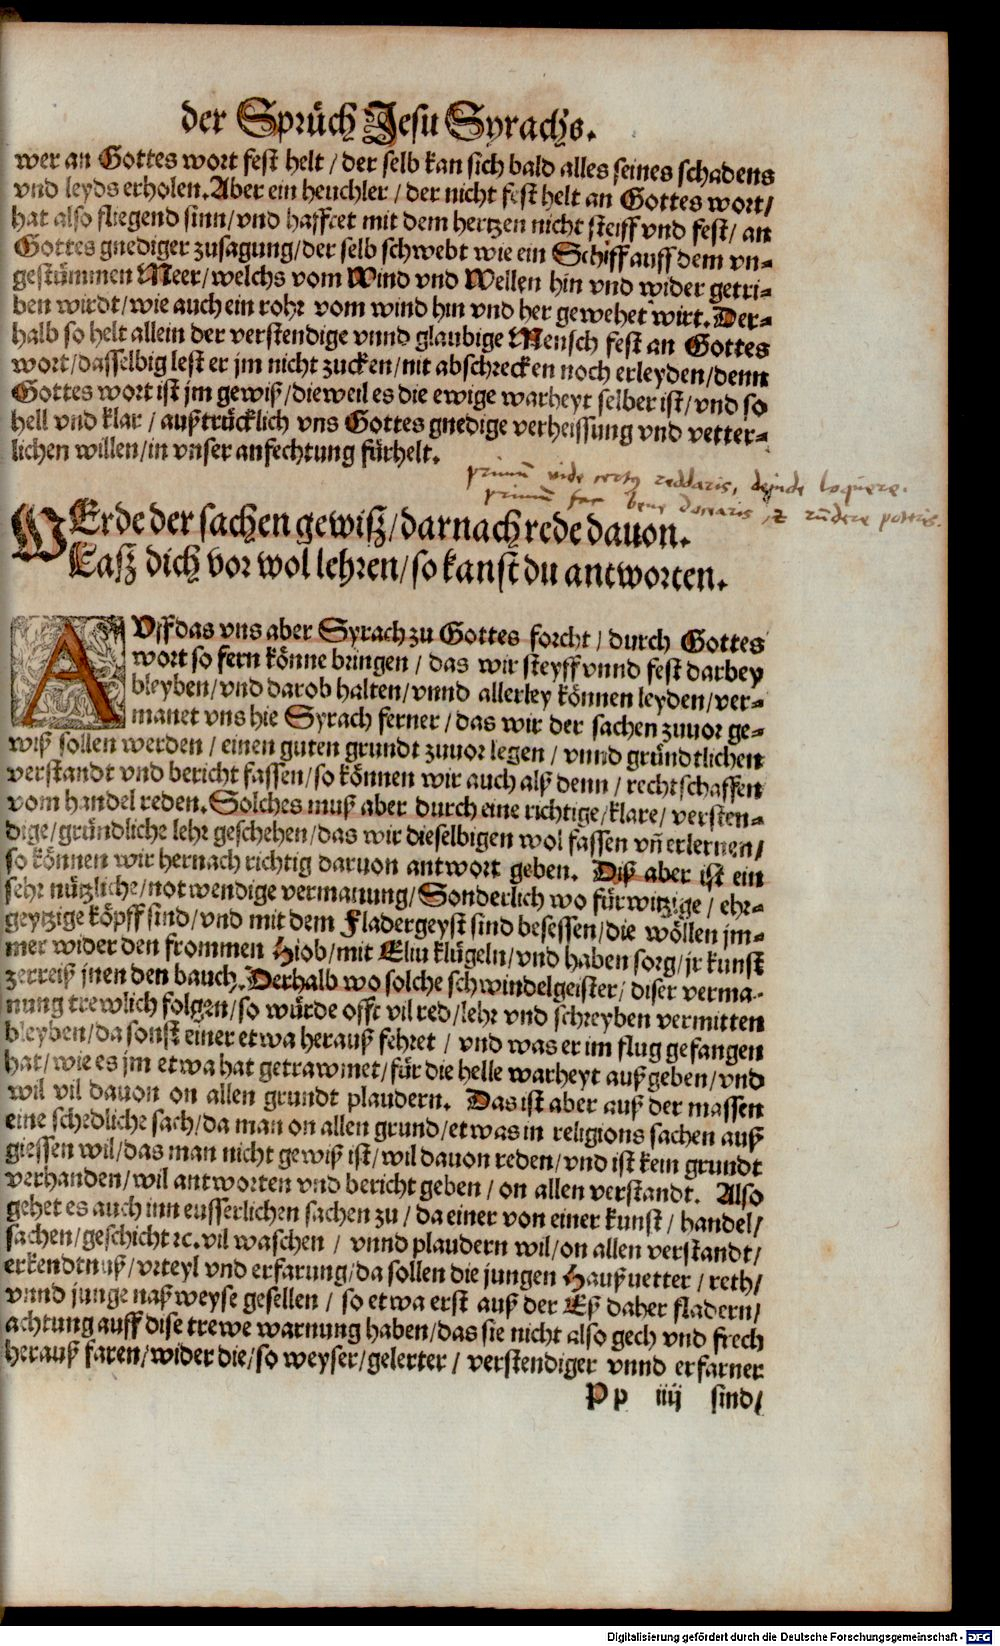 der Sprüch Jesu Syrachs.
wer an Gottes wort fest helt / der selb kan sich bald alles seines schadens
vnd leyds erholen. Aber ein heuchler / der nicht fest helt an Gottes wort /
hat also fliegend sinn / vnd hafftet mit dem hertzen nicht steiff vnd fest / an
Gottes gnediger zusagung / der selb schwebt wie ein Schiff auff dem vn-
gestümmen Meer / welchs vom Wind vnd Wellen hin vnd wider getri-
ben wirdt / wie auch ein rohr vom wind hin vnd her gewehet wirt. Der-
halb so helt allein der verstendige vnnd glaubige Mensch fest an Gottes
wort / dasselbig lest er jm nicht zucken / nit abschrecken noch erleyden / denn
Gottes wort ist jm gewiß / dieweil es die ewige warheyt selber ist / vnd so
hell vnd klar / außtrücklich vns Gottes gnedige verheissung vnd vetter-
lichen willen / in vnser anfechtung fürhelt.
primũ vide certus reddaris, deinde loquere.
primũ fac bene docearis, & rñdere poteris.
WErde der sachen gewiß / darnach rede dauon.
Laß dich vor wol lehren / so kanst du antworten.
AVff das vns aber Syrach zu Gottes forcht / durch Gottes
wort so fern könne bringen / das wir steyff vnnd fest darbey
bleyben / vnd darob halten / vnnd allerley können leyden / ver-
manet vns hie Syrach ferner / das wir der sachen zuuor ge-
wiß sollen werden / einen guten grundt zuuor legen / vnnd gründtlichen
verstandt vnd bericht fassen / so können wir auch alß denn / rechtschaffen
vom handel reden. Solches muß aber durch eine richtige / klare / versten-
dige / gründliche lehr geschehen / das wir dieselbigen wol fassen vñ erlernen /
so können wir hernach richtig daruon antwort geben. Diß aber ist ein
sehr nützliche / notwendige vermanung / Sonderlich wo fürwitzige / ehr-
geytzige köpff sind / vnd mit dem Fladergeyst sind besessen / die wöllen jm-
mer wider den frommen Hiob / mit Eliu klügeln / vnd haben sorg / jr kunst
zerreiß jnen den bauch. Derhalb wo solche schwindelgeister / diser verma-
nung trewlich folgen / so würde offt vil red / lehr vnd schreyben vermitten
bleyben / da sonst einer etwa herauß fehret / vnd was er im flug gefangen
hat / wie es jm etwa hat getrawmet / für die helle warheyt außgeben / vnd
wil vil dauon on allen grundt plaudern. Das ist aber auß der massen
eine schedliche sach / da man on allen grund / etwas in religions sachen auß
giessen wil / das man nicht gewiß ist / wil dauon reden / vnd ist kein grundt
verhanden / wil antworten vnd bericht geben / on allen verstandt. Also
gehet es auch inn eusserlichen sachen zu / da einer von einer kunst / handel /
sachen / geschicht ꝛc. vil waschen / vnnd plaudern wil / on allen verstandt /
erkendtnuß / vrteyl vnd erfarung / da sollen die jungen Haußuetter / reth /
vnnd junge naßweyse gesellen / so etwa erst auß der Eß daher fladern /
achtung auff dise trewe warnung haben / das sie nicht also gech vnd frech
herauß faren / wider die / so weyser / gelerter / verstendiger vnnd erfarner
Pp iiij sind /
Digitalisierung gefördert durch die Deutsche Forschungsgemeinschaft - DFG